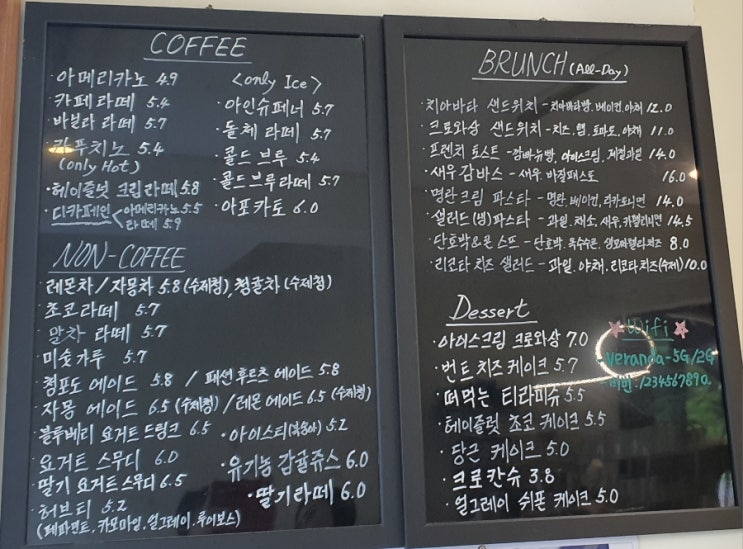 COFFEE
· 아메리카노 4.9
· 카페라떼 5.4
· 바닐라 라떼 5.7
· 카푸치노 5.4
(only Hot)
· 헤이즐넛 크림라떼 5.8
· 디카페인 < 아메리카노 5.5
라떼 5.9
<only Ice>
· 아인슈페너 5.7
· 돌체 라떼 5.7
· 콜드 브루 5.4
· 콜드브루라떼 5.7
· 아포카토 6.0
NON-COFFEE
· 레몬차 / 자몽차 5.8 (수제청), 청귤차 (수제청)
· 초코라떼 5.7
· 말차 라떼 5.7
· 미숫가루 5.7
· 청포도 에이드 5.8 / 패션후르츠 에이드 5.8
· 자몽 에이드 6.5 (수제청) / 레몬 에이드 6.5 (수제청)
· 블루베리 요거트 드링크 6.5 · 아이스티(복숭아) 5.2
· 요거트 스무디 6.0 · 유기농 감귤쥬스 6.0
· 딸기 요거트 스무디 6.5 · 딸기라떼 6.0
· 허브티 5.2
(페파민트, 카모마일, 얼그레이, 루이보스)
BRUNCH (All-Day)
· 치아바타 샌드위치 - 치아바타빵, 베이컨, 야채 12.0
· 크로와상 샌드위치 - 치즈, 햄, 토마토, 야채 11.0
· 프렌치 토스트 - 깜빠뉴빵, 아이스크림, 제철과일 14.0
· 새우감바스 - 새우 바질페스토 16.0
· 명란크림 파스타 - 명란, 베이컨, 리가토니면 14.0
· 샐러드(냉)파스타 - 과일, 채소, 새우, 카펠리니면 14.5
· 단호박&콘 스프 - 단호박, 옥수수콘, 모짜렐라치즈 8.0
· 리코타 치즈 샐러드 - 과일, 야채, 리코타치즈(수제) 10.0
Dessert
· 아이스크림 크로와상 7.0
· 번트 치즈 케이크 5.7
· 떠먹는 티라미슈 5.5
· 헤이즐럿 초코 케이크 5.5
· 당근 케이크 5.0
· 크로칸슈 3.8
· 얼그레이 쉬폰 케이크 5.0
Wifi
veranda-5G/2G
비번:1234567890a